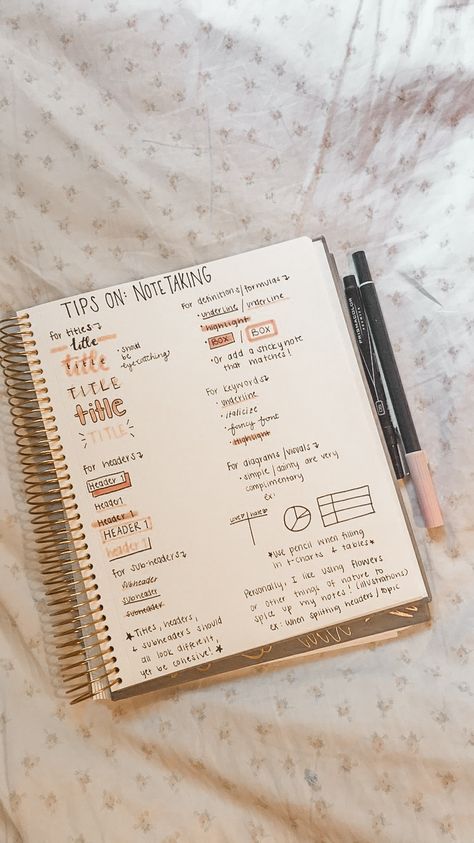 TIPS ON: NOTETAKING
for titles
title
title
TITLE
title
TITLE
• should
be
eyecatching
for headers
Header 1
Header 1
Header 1
HEADER 1
header 1
for subheaders
subheader
subheader
subheader
★ Titles, headers,
+ subheaders should
all look different,
yet be cohesive! ★
For definitions/formulas
• underline / underline
• highlight
• BOX / BOX
• Or add a sticky note
that matches!
For keywords
• underline
• italicize
• fancy font
• highlight
For diagrams/visuals
• simple/dainty are very
complimentary
ex:
★ Use pencil when filling
in t-charts & tables ★
Personally, I like using flowers
or other things of nature to
spice up my notes! (illustrations)
ex: when splitting headers/topic